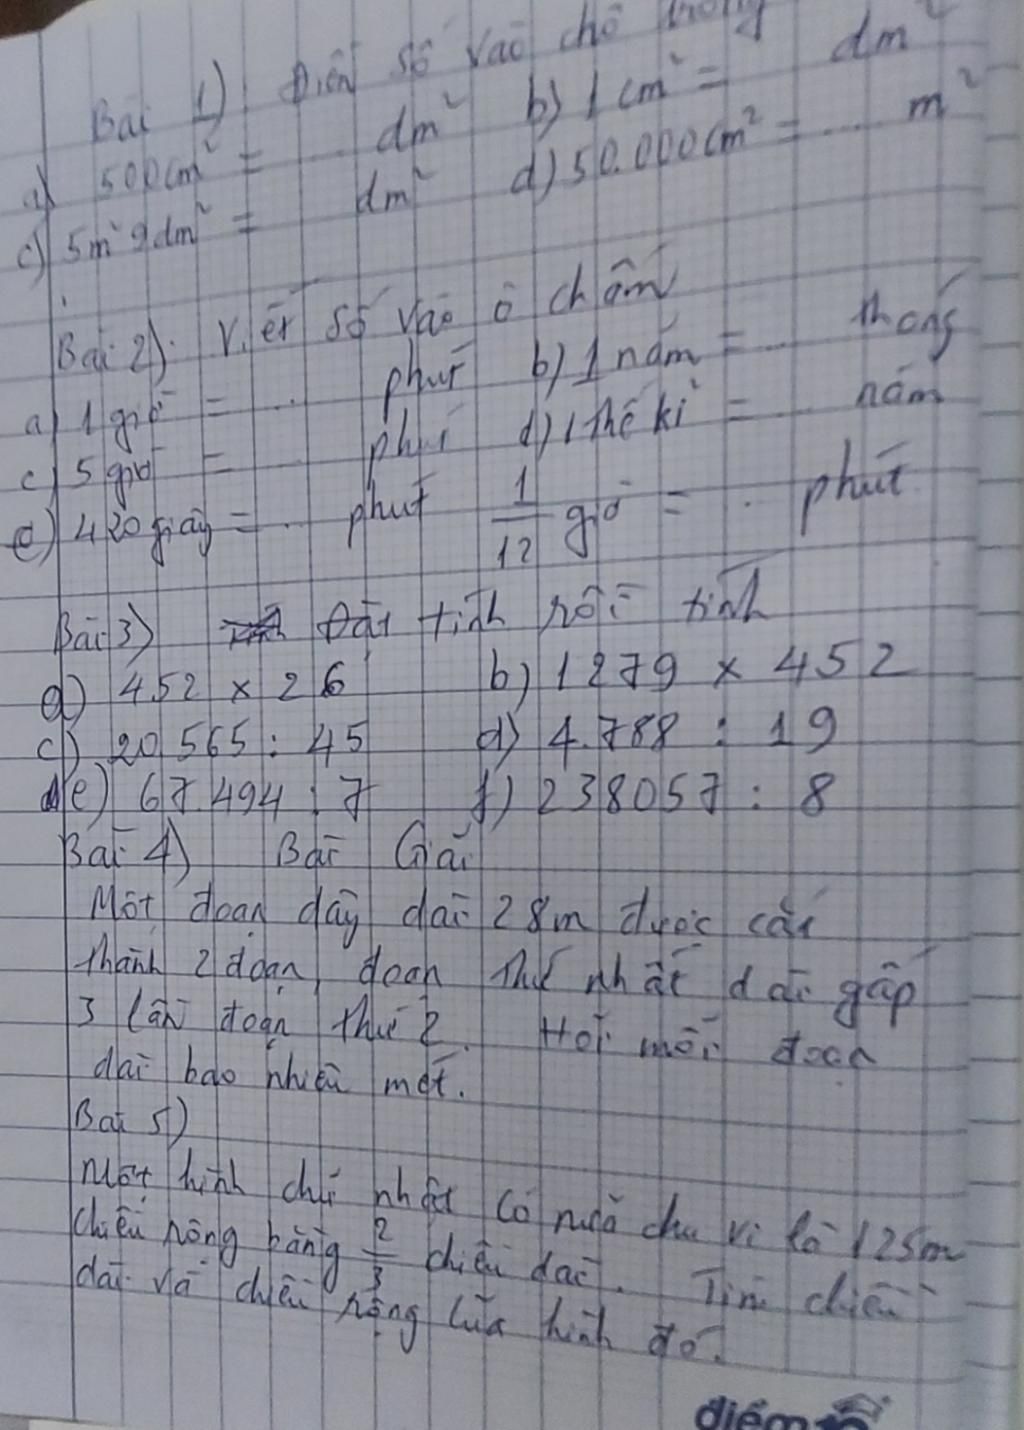 Bài 1) Điền số vào chỗ trống
a) 500cm² = ... dm² b) 1 cm² = dm²
c) 5m² 9dm² = dm² d) 50.000cm² = ... m²
Bài 2). Viết số vào ô chấm
a) 1 giờ = .. phút b) 1 năm = .. tháng
c) 5 giờ = .. phút d) 1 thế kỉ = .. năm
e) 420 giây = .. phút 1/12 giờ = . phút
Bài 3) Đặt tính rồi tính
a) 452 x 26 b) 1279 x 452
c) 20 565 : 45 d) 4.788 : 19
e) 67.494 : 7 f) 238057 : 8
Bài 4) Bài Giải
Một đoạn dây dài 28m được cắt
thành 2 đoạn, đoạn thứ nhất dài gấp
3 lần đoạn thứ 2. Hỏi mỗi đoạn
dài bao nhiêu mét.
Bài 5)
Một hình chữ nhật có nửa chu vi là 125m
chiều rộng bằng 2/3 chiều dài. Tìm chiều
dài và chiều rộng của hình đó.
điểm 10